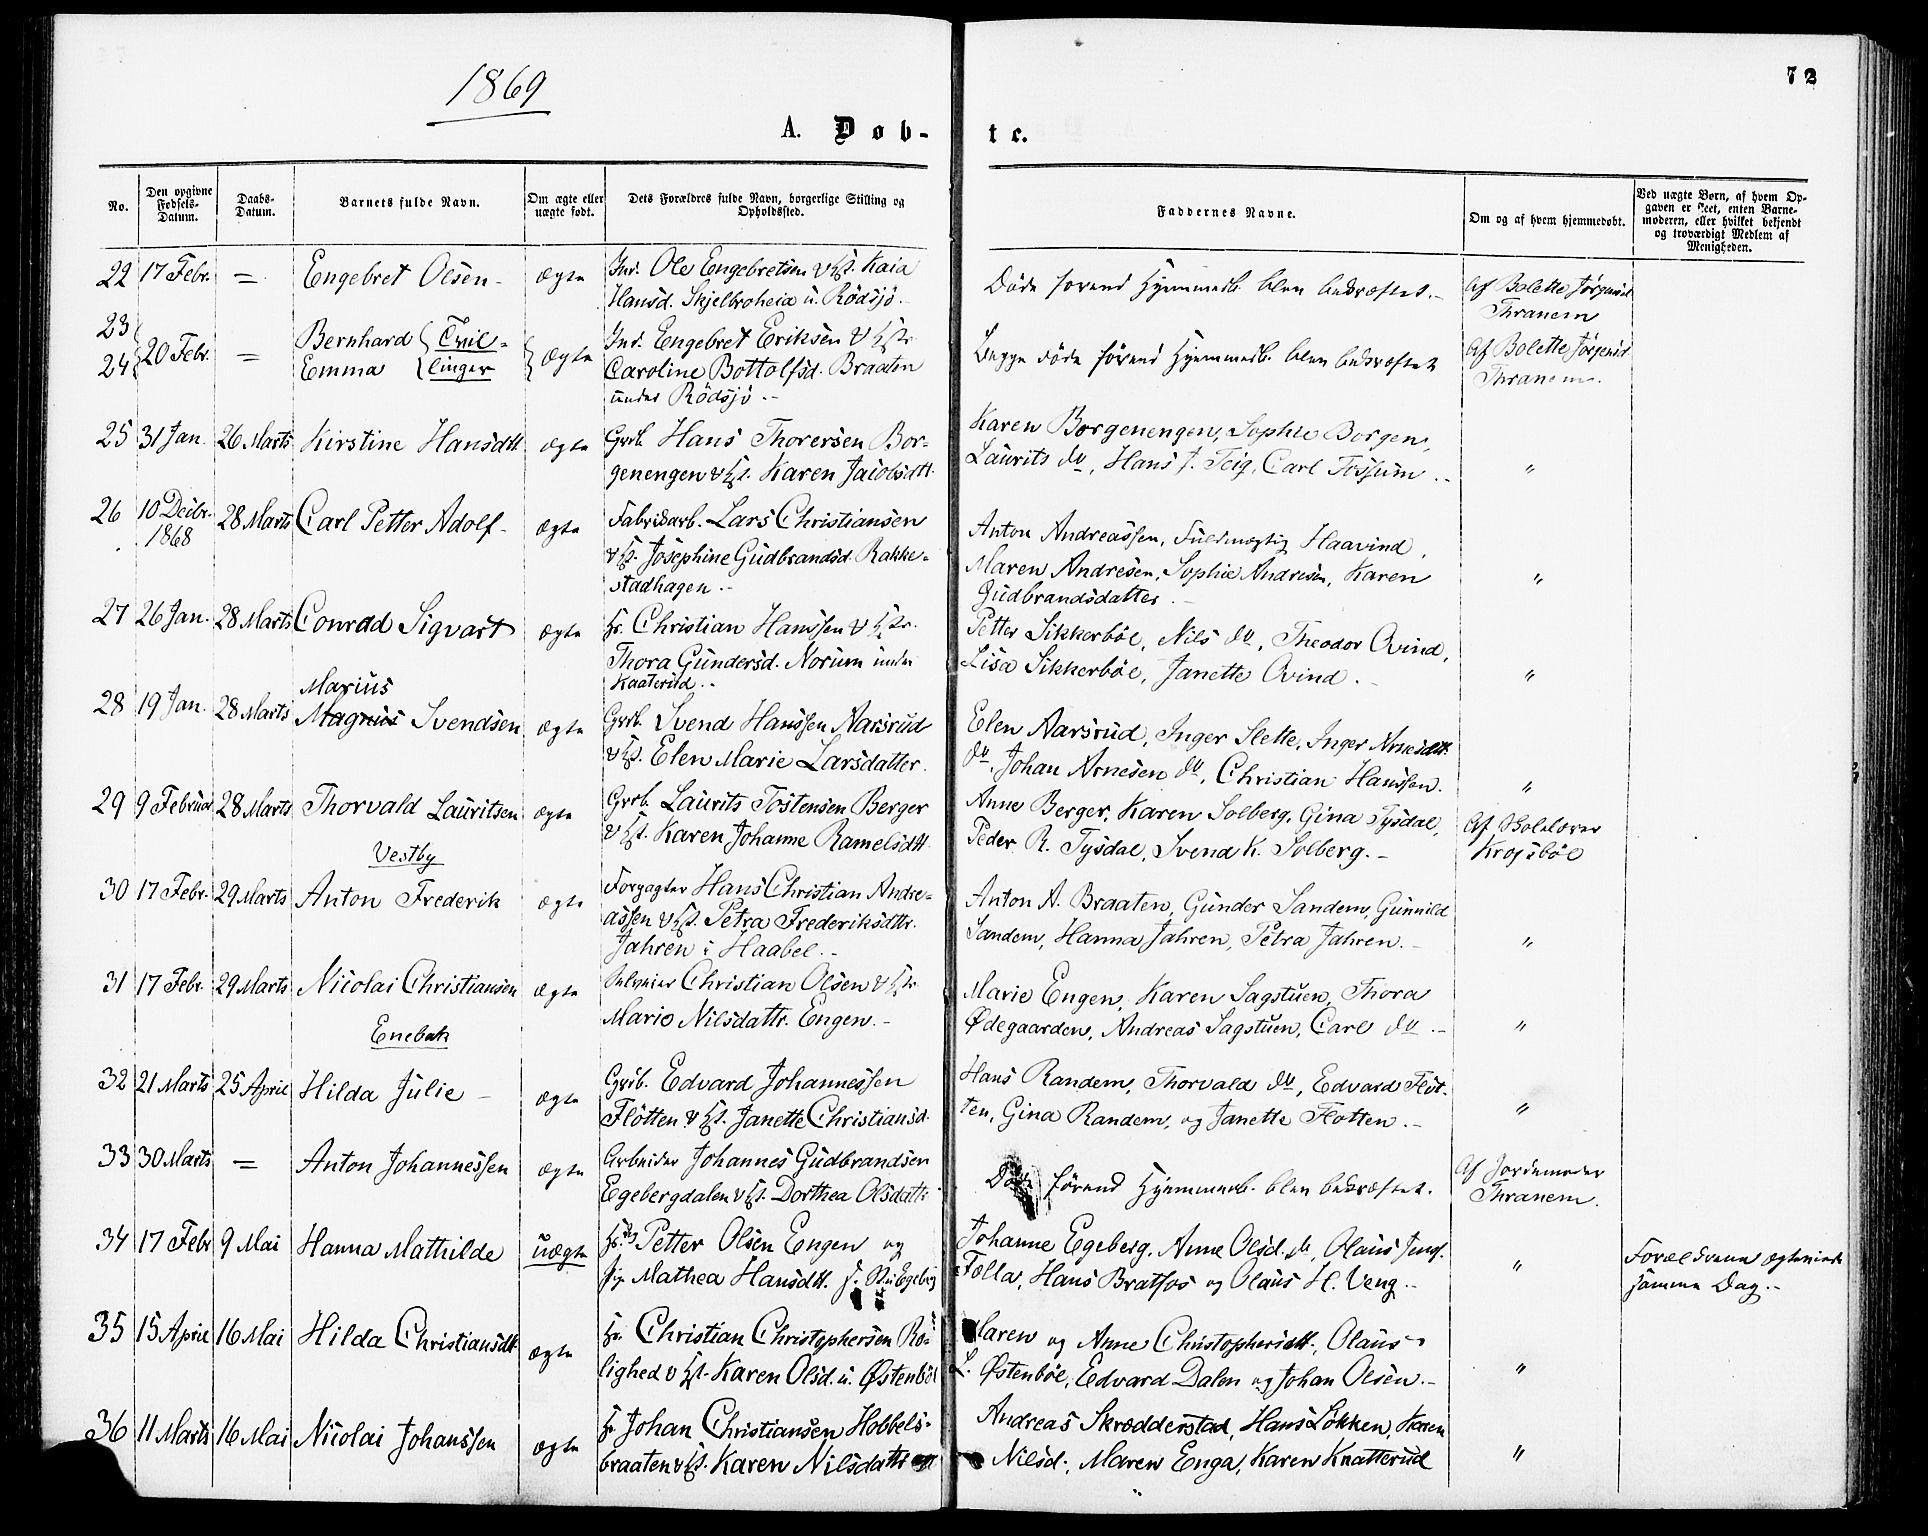 1869
72
A. Døb-
te.
No.
Den opgivne
Fødsels-
Datum.
Daabs-
Datum.
Barnets fulde Navn.
Om ægte eller
uægte født.
Dets Forældres fulde Navn, borgerlige Stilling og
Opholdssted.
Faddernes Navne.
Om og af hvem hjemmedøbt.
Ved uægte Børn, af hvem Op-
gaven er skeet, enten Barne-
moderen, eller hvilket bekjendt
og troværdigt Medlem af
Menigheden.
22 17 Febr. = Engebret Olsen - ægte
Ind. Ole Engebretsen & Hst. Kaia
Hansd. Skjelbroheia u. Rödsjö.
Döde forend Hjemmedb. blev bekræftet. -
Af Bolette Jørgensd
Thranem
23
24 20 Febr. =
Bernhard { Tvil-
Emma { linger } ægte
Ind. Engebret Eriksen & Hstr
Caroline Bottolfsd. Braaten
under Rödsjö. -
Begge döde förend Hjemmedb. blev bekræftet
Af Bolette Jörgensd
Thranem.
25 31 Jan. 26 Marts Kirstine Hansdtt. ægte
Grb. Hans Thorersen Bor-
genengen & Hst. Karen Jacobsdtt.
Karen Borgenengen, Sophie Borgen,
Laurits do, Hans J. Teig, Carl Fossum. -
"
26 10 Decbr.
1868
28 Marts Carl Petter Adolf - ægte
Fabrikarb. Lars Christiansen
& Hst. Josephine Gudbrandsd. Rakke-
stadhagen. -
Anton Andreassen, Fuldmægtig Haavind,
Maren Andresen, Sophie Andresen, Karen
Gudbrandsdatter. -
"
27 26 Jan. 28 Marts Conrad Sigvart ægte
Hr. Christian Hanssen & Hstr.
Thora Gundersd. Norum under
Kaaterud. -
Petter Sikkerböe, Nils do, Theodor Ovind,
Lisa Sikkerböe, Janette Ovind. -
"
28 19 Jan. 28 Marts
Marius
Magnus Svendsen ægte
Grb. Svend Hanssen Aarsrud
& Hst. Elen Marie Larsdatter.
Elen Aarsrud, Inger Slette, Inger Arnesdtt.
do, Johan Arnesen do, Christian Hanssen.
"
29 9 Februar 28 Marts Thorvald Lauritsen ægte
Grb. Laurits Tostensen Berger
& Hst. Karen Johanne Ramelsdtt
Anne Berger, Karen Solberg, Gina Tysdal,
Peder R. Tysdal, Svend K. Solberg. -
Krogsböl
Vestby
30 17 Febr. 29 Marts Anton Frederik ægte
Forpagter Hans Christian Andre-
assen & Hst. Petra Frederiksdtr.
Jahren i Haabel. -
Anton A. Braaten, Gunder Sandem, Gunnild
Sandem, Hanna Jahren, Petra Jahren. -
"
31 17 Febr. 29 Marts Nicolai Christiansen ægte
Selveier Christian Olsen & Hstr
Marie Nilsdattr. Engen. -
Marie Engen, Karen Sagstuen, Thora
Ødegaarden, Andreas Sagstuen, Carl do. -
"
Enebak
32 21 Marts 25 April Hilda Julie - ægte
Grb. Edvard Johannessen
Flötten & Hst. Janette Christiansd.
Hans Randem, Thorvald do, Edvard Flöt-
ten, Gina Randem, og Janette Flotten. -
"
33 30 Marts = Anton Johannessen ægte
Arbeider Johannes Gudbrandsen
Egebergdalen & Hst. Dorthea Olsdattr
Döde förend Hjemmedb. blev bekræftet.
Af Jordemoder
Thranem.
34 17 Febr 9 Mai Hanna Mathilde uægte
Petter Olsen Engen og
Pig. Mathea Hansdtt.
Johanne Egeberg, Anne Olsd. do, Olaus
Folla, Hans Bratfos og Olaus H. Veng. -
"
Forældrene ægteviede
samme Dag. -
35 15 April 16 Mai Hilda Christiansdtt. ægte
Hr. Christian Christophersen Ro-
lighed & Hst. Karen Olsd. u. Østenböl
Karen og Anne Christophersdtt., Olaus
L. Østenböe, Edvard Dalen og Johan Olsen. -
"
36 11 Marts 16 Mai Nicolai Johanssen ægte
Hr Johan Christiansen Hobbels-
braaten & Hst. Karen Nilsdattr
Andreas Skrædderstad, Hans Løkken, Karen
Nilsd., Maren Enga, Karen Knatterud
"